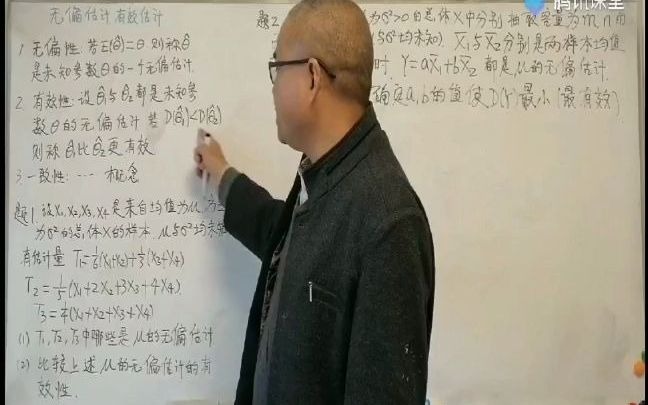 腾讯课堂
无偏估计 有效估计
1. 无偏性: 若E(θ̂)=θ 则称θ̂
是未知参数θ的一个无偏估计.
2. 有效性: 设θ̂₁与θ̂₂都是未知参
数θ的无偏估计 若 D(θ̂₁)<D(θ̂₂)
则称 θ̂₁比θ̂₂更有效
3. 一致性: … 概念
题1. 设X₁,X₂,X₃,X₄是来自均值为μ,方
为σ²的总体X的样本 μ与σ²均未
有估计量 T₁=1/6(X₁+X₂)+1/3(X₃+X₄)
T₂=1/5(X₁+2X₂+3X₃+4X₄)
T₃=1/4(X₁+X₂+X₃+X₄)
(1) T₁,T₂,T₃中哪些是μ的无偏估计
(2) 比较上述μ的无偏估计的有
效性.
题2
为σ²>0的总体X中分别抽取容量为m,n
与σ²均未知. X̄₁与X̄₂分别是两样本均值
时 Y=aX̄₁+bX̄₂ 都是μ的无偏估计.
确定a,b的值使D(Y)最小(最有效)